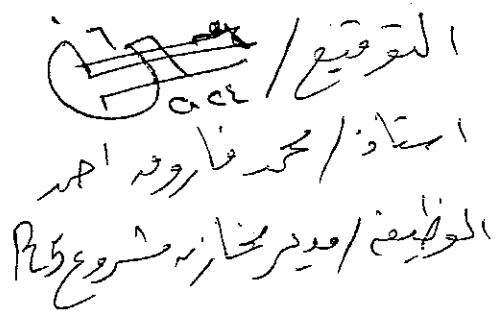 التوقيع /
استاذ / محمد فاروق احمد
الوظيفة / مدير مخازن مشروع R5